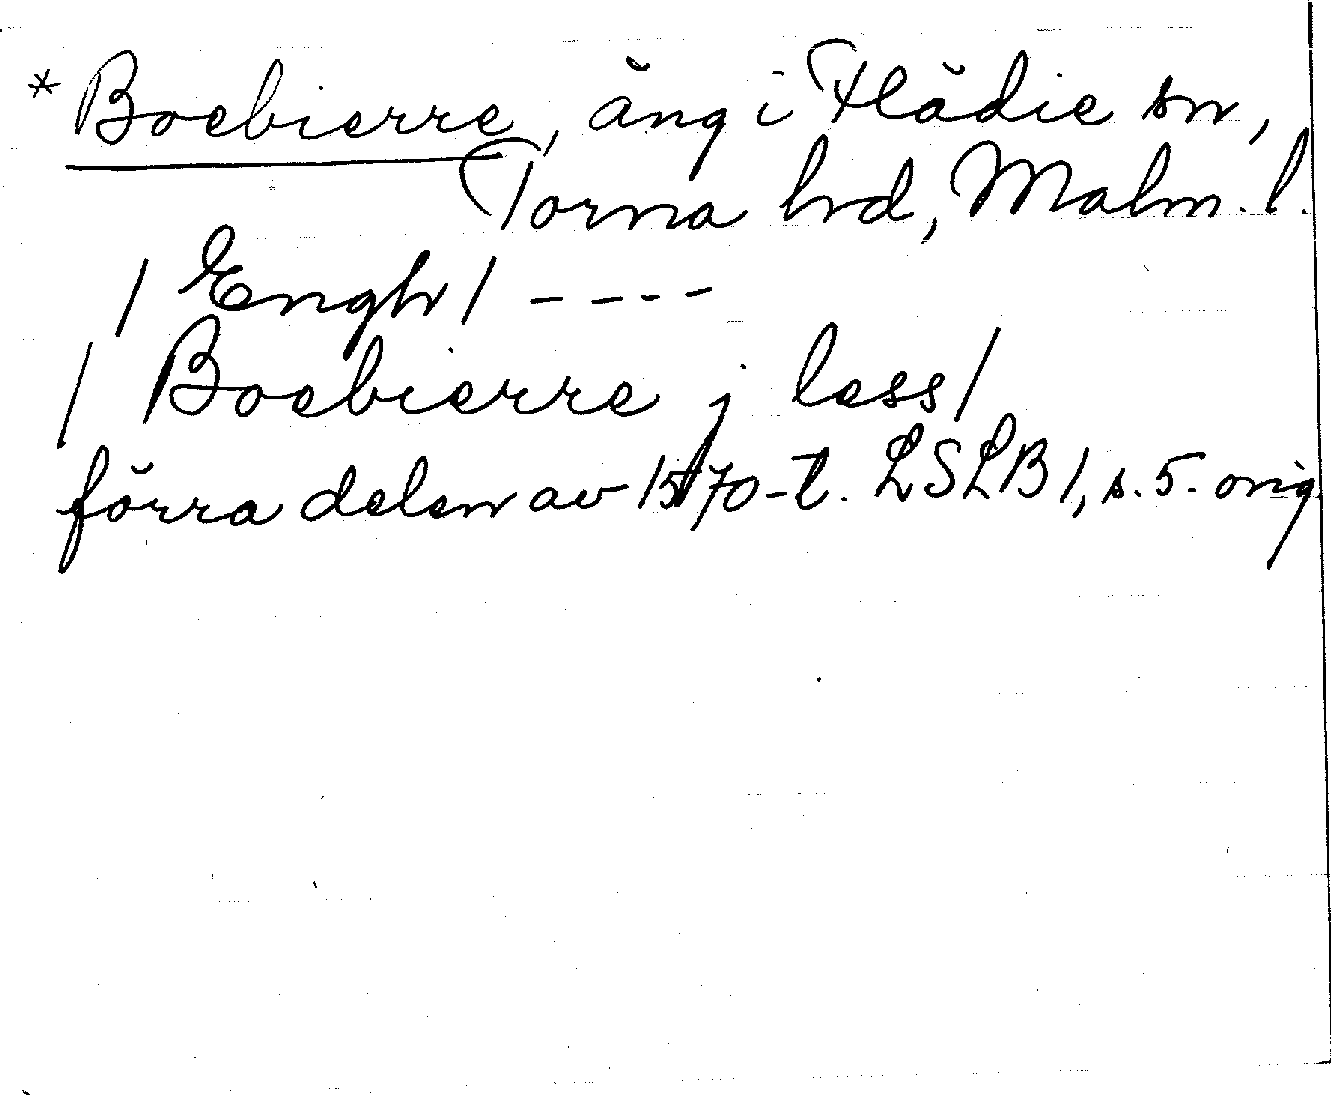 *Boebierre, äng i Flädie sn,
Torna hd, Malm. l.
/ Engh / ----
/ Boebierre j less /
förra delen av 1570-t. LSLB 1, s. 5. orig.